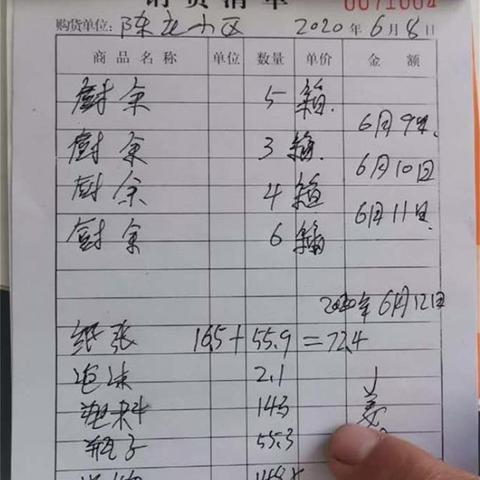 销货清单
0071004
购货单位: 陈龙小区 2020年6月8日
商品名称 单位 数量 单价 金额
厨余 5 箱.
6月9日.
厨余 3 箱.
6月10日
厨余 4 箱
6月11日.
厨余 6 箱
2020年6月12日
纸张 16.5+55.9=72.4
泡沫 2.1
塑料 14.3
瓶子 55.3